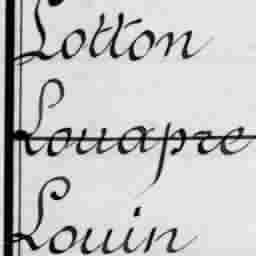 Lotton
Louapre
Louin